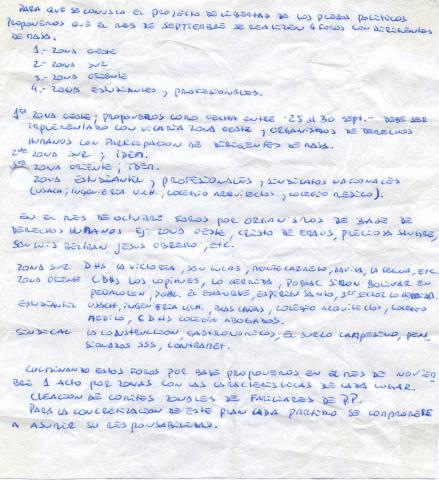 PARA QUE SE CONOSCA EL PROYECTO DE LIBERTAD DE LOS PRESOS POLITICOS
PROPONEMOS QUE EL MES DE SEPTIEMBRE SE REALIZEN 4 FOROS CON DIRIGENTES
DE MASA.
1.- ZONA OESTE
2.- ZONA SUR
3.- ZONA ORIENTE
4.- ZONA ESTUDIANTES Y PROFESIONALES.
1ra ZONA OESTE; PROPONEMOS COMO FECHA ENTRE -25 AL 30 SEPT.- DEBE SER
IMPLEMENTADO CON VICARIA ZONA OESTE Y ORGANISMOS DE DERECHOS
HUMANOS CON PARTICIPACION DE DIRIGENTES DE MASA.
2da ZONA SUR; IDEM.
ZONA ORIENTE; IDEM.
ZONA ESTUDIANTIL Y PROFESIONALES Y SINDICATOS NACIONALES
(USACH; INGENIERIA U.CH., COLEGIO ARQUITECTOS, COLEGIO MEDICO).
EN EL MES DE OCTUBRE FOROS POR ORGANISMOS DE BASE DE
DERECHOS HUMANOS EJ: ZONA OESTE, CRISTO DE EMAUS, PRECIOSA SANGRE,
SAN LUIS BELTRAN JESUS OBRERO, ETC.
ZONA SUR DHS LA VICTORIA, SAN LUCAS, MONTE CARMELO, DAVILA, LA LEGUA, ETC
ZONA ORIENTE CDHS LOS COPIHUES, LA HERMIDA, POBLAC SIMON BOLIVAR EN
PEÑALOLEN POBL. EL ESPIRITU SANTO, 3er SECTOR LA HERMIDA.
ESTUDIANTIL USACH, INGENIERIA UCH, COLEGIO ARQUITECTOS, COLEGIO
MEDICO, CDHS COLEGIO ABOGADOS.
SINDICAL LA CONSTRUCCION GASTRONOMICOS, EL SURCO CAMPESINO, PEN
SIONADOS SSS, CONTRAMET.
CULMINANDO ESTOS FOROS POR BASE PROPONEMOS EN EL MES DE NOVIEM
BRE 1 ACTO POR ZONAS CON LAS CARACTERISTICAS DE CADA LUGAR.
CREACION DE COMITES ZONALES DE FAMILIARES DE P.P.
PARA LA CONCRETIZACION DE ESTE PLAN CADA PARTIDO SE COMPROMETE
A ASUMIR SU RESPONSABILIDAD.